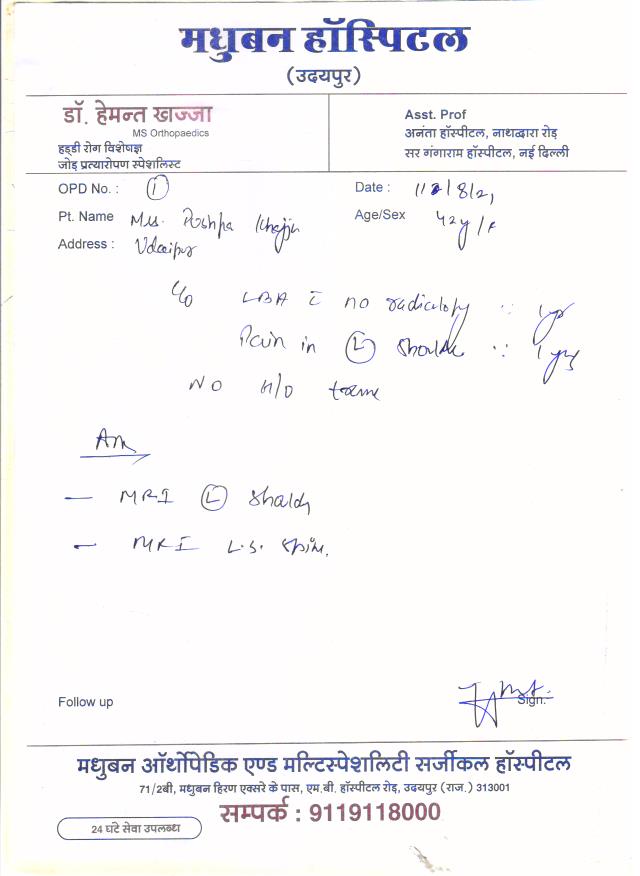 मधुबन हॉस्पिटल
(उदयपुर)
डॉ. हेमन्त खज्जा
MS Orthopaedics
हड्डी रोग विशेषज्ञ
जोड़ प्रत्यारोपण स्पेशलिस्ट
Asst. Prof
अनंता हॉस्पीटल, नाथद्वारा रोड़
सर गंगाराम हॉस्पीटल, नई दिल्ली
OPD No. : 1
Date : /8/21
Pt. Name Mrs.
Age/Sex 42y/F
Address : Udaipur
C/o LBA c no
Pain in L
NO H/O
Adv
— MRI L
— MRI L.S. Spine.
Follow up
Sign.
मधुबन ऑर्थोपेडिक एण्ड मल्टिस्पेशलिटी सर्जीकल हॉस्पीटल
71/2बी, मधुबन हिरण एक्सरे के पास, एम.बी. हॉस्पीटल रोड़, उदयपुर (राज.) 313001
सम्पर्क : 9119118000
24 घंटे सेवा उपलब्ध